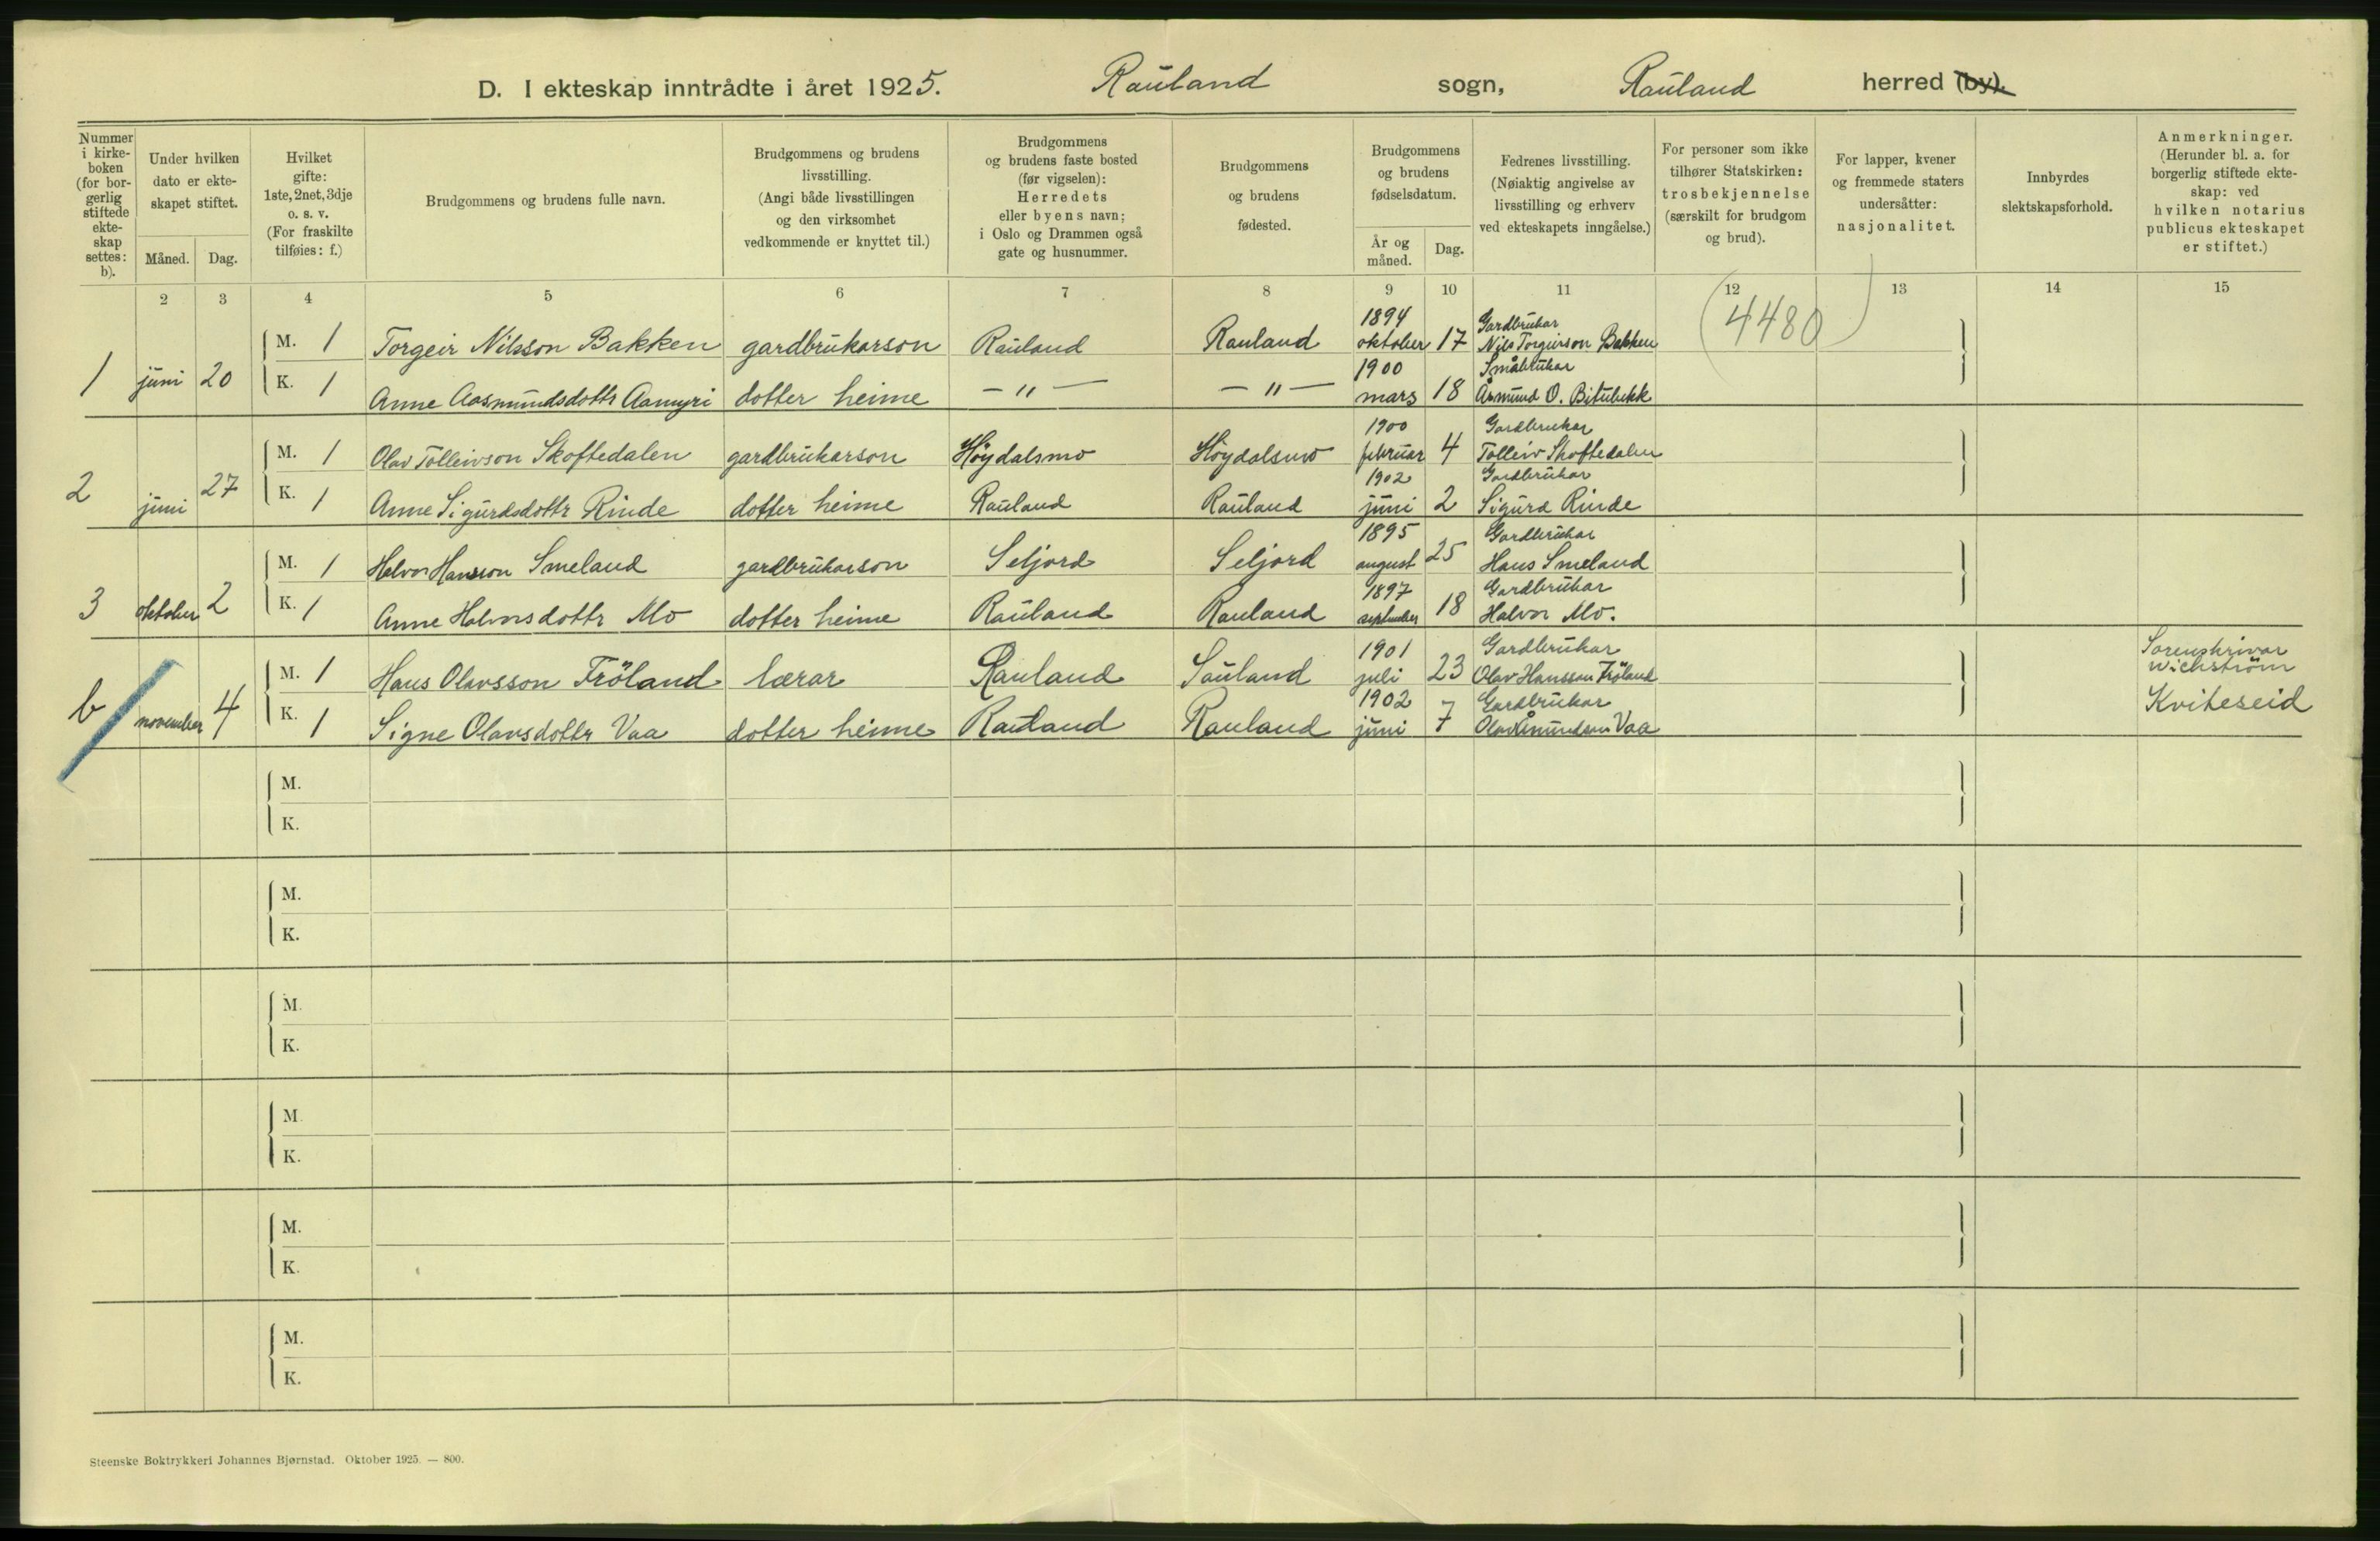 D. I ekteskap inntrådte i året 1925. Rauland sogn, Rauland herred (by).
Nummer
i kirke-
boken
(for bor-
gerlig
stiftede
ekte-
skap
settes:
b).
Under hvilken
dato er ekte-
skapet stiftet.
Måned. Dag.
Hvilket
gifte:
1ste, 2net, 3dje
o. s. v.
(For fraskilte
tilføies: f.)
Brudgommens og brudens fulle navn.
Brudgommens og brudens
livsstilling.
(Angi både livsstillingen
og den virksomhet
vedkommende er knyttet til.)
Brudgommens
og brudens faste bosted
(før vigselen):
Herredets
eller byens navn;
i Oslo og Drammen også
gate og husnummer.
Brudgommens
og brudens
fødested.
Brudgommens
og brudens
fødselsdatum.
År og
måned.
Dag.
Fedrenes livsstilling.
(Nøiaktig angivelse av
livsstilling og erhverv
ved ekteskapets inngåelse.)
For personer som ikke
tilhører Statskirken:
trosbekjennelse
(særskilt for brudgom
og brud).
For lapper, kvener
og fremmede staters
undersåtter:
nasjonalitet.
Innbyrdes
slektskapsforhold.
Anmerkninger.
(Herunder bl. a. for
borgerlig stiftede ekte-
skap: ved
hvilken notarius
publicus ekteskapet
er stiftet.)
2 3 4 5 6 7 8 9 10 11 12 13 14 15
(4480)
1 juni 20
M. 1 Torgeir Nilsson Bakken gardbrukarson Rauland Rauland 1894 oktober 17 Gardbrukar
Nils Torgeirson Bakken
K. 1 Anne Aasmundsdottr Aamyri dotter heime — " — — " — 1900 mars 18 Småbrukar
Åsmund O. Bitubekk
2 juni 27
M. 1 Olav Tolleivson Skoftedalen gardbrukarson Høydalsmo Høydalsmo 1900 februar 4 Gardbrukar
Tolleiv Skoftedalen
K. 1 Anne Sigurdsdottr Rinde dotter heime Rauland Rauland 1902 juni 2 Gardbrukar
Sigurd Rinde
3 oktober 2
M. 1 Halvor Hansson Smeland gardbrukarson Seljord Seljord 1895 august 25 Gardbrukar
Hans Smeland
K. 1 Anne Halvorsdottr Mo dotter heime Rauland Rauland 1897 september 18 Gardbrukar
Halvor Mo.
b november 4
M. 1 Hans Olavsson Fröland lærar Rauland Sauland 1901 juli 23 Gardbrukar
Olav Hansson Fröland
Sorenskrivar
Wichström
Kviteseid
K. 1 Signe Olavsdottr Vaa dotter heime Rauland Rauland 1902 juni 7 Gardbrukar
Olav Åmundson Vaa
M.
K.
M.
K.
M.
K.
M.
K.
M.
K.
M.
K.
Steenske Boktrykkeri Johannes Bjørnstad. Oktober 1925. — 800.